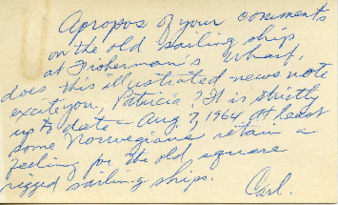 Apropos of your comments
on the old sailing ship
at Fisherman's Wharf,
does this illustrated news note
excite you, Patricia? It is strictly
up to date - Aug. 7, 1964. At least
some Norwegians retain a
feeling for the old square
rigged sailing ships.
Carl.